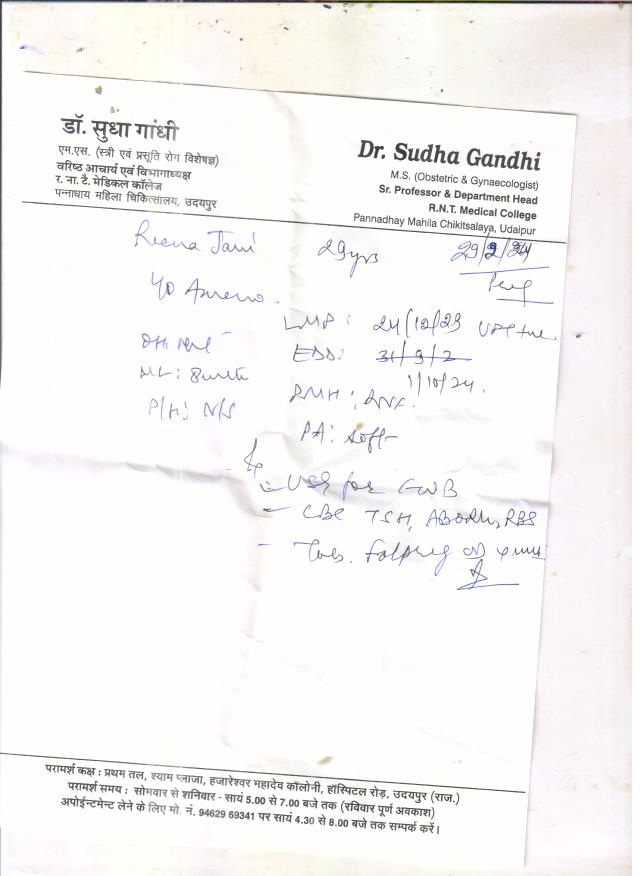 डॉ. सुधा गांधी
एम.एस. (स्त्री एवं प्रसूति रोग विशेषज्ञ)
वरिष्ठ आचार्य एवं विभागाध्यक्ष
र. ना. टै. मेडिकल कॉलेज
पन्नाधाय महिला चिकित्सालय, उदयपुर
Dr. Sudha Gandhi
M.S. (Obstetric & Gynaecologist)
Sr. Professor & Department Head
R.N.T. Medical College
Pannadhay Mahila Chikitsalaya, Udaipur
Reena 29yrs 29/2/24
LMP: 24/12/23 UPT +ve
EDD: 31/9/2
1/10/24.
ML: 8
P/H: N/S
PA: soft
- USG for FWB
- CBC TSH, ABORh, RBS
- Tab. Folpreg
परामर्श कक्ष : प्रथम तल, श्याम प्लाजा, हजारेश्वर महादेव कॉलोनी, हॉस्पिटल रोड़, उदयपुर (राज.)
परामर्श समय : सोमवार से शनिवार - सायं 5.00 से 7.00 बजे तक (रविवार पूर्ण अवकाश)
अपोईन्टमेन्ट लेने के लिए मो. नं. 94629 69341 पर सायं 4.30 से 8.00 बजे तक सम्पर्क करें।